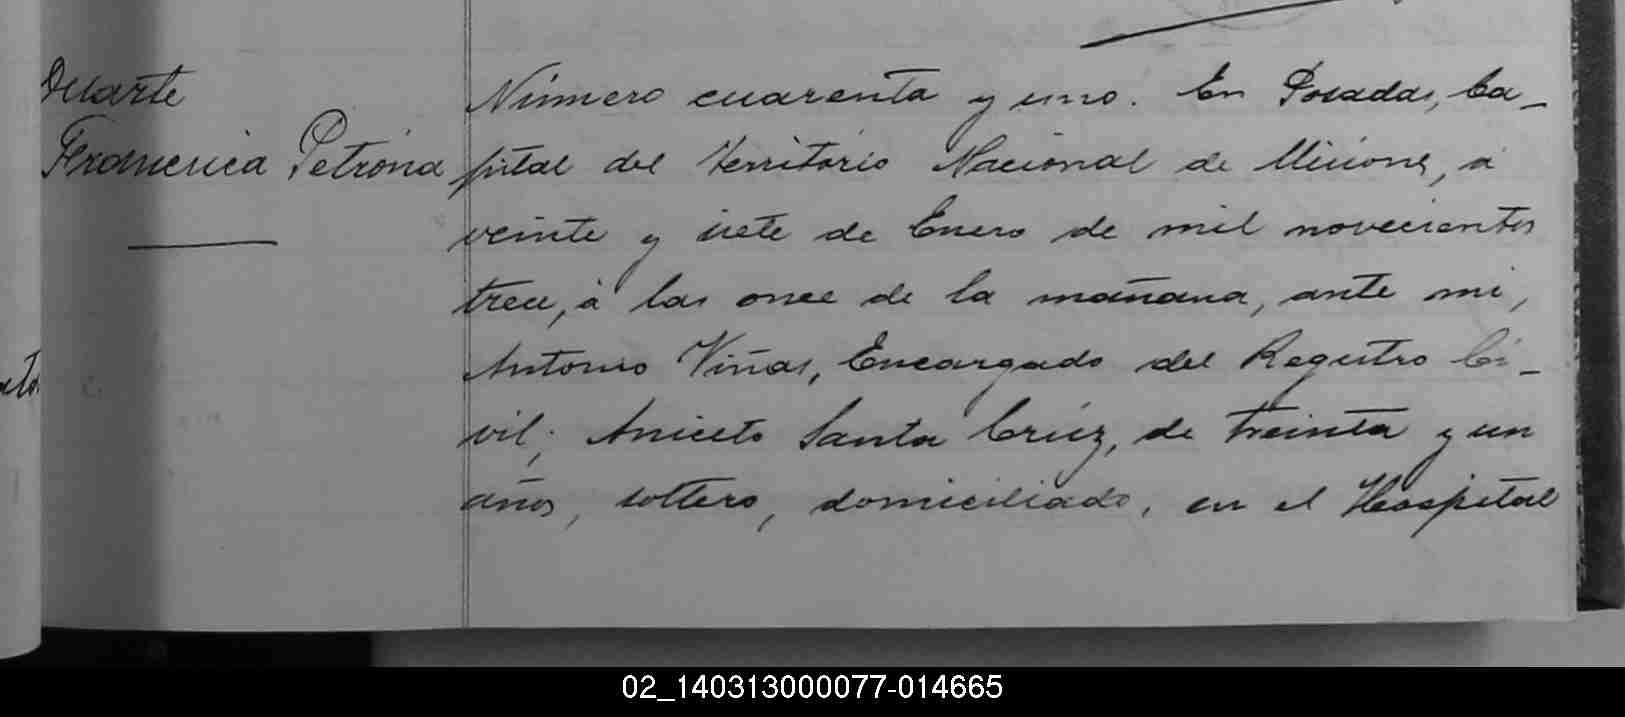 Duarte
Francisca Petrona
Número cuarenta y uno. En Posadas, Ca-
pital del Territorio Nacional de Misiones, á
veinte y siete de Enero de mil novecientos
trece, á las once de la mañana, ante mi,
Antonio Viñas, Encargado del Registro Ci-
vil; Aniceto Santa Crúz, de treinta y un
años, soltero, domiciliado, en el Hospital
02_140313000077-014665